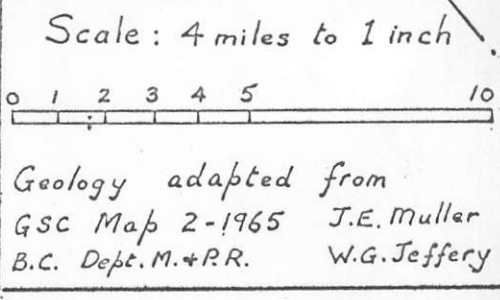 Scale: 4 miles to 1 inch
0 1 2 3 4 5 10
Geology adapted from
GSC Map 2-1965 J.E. Muller
B.C. Dept. M. & P.R. W.G. Jeffery